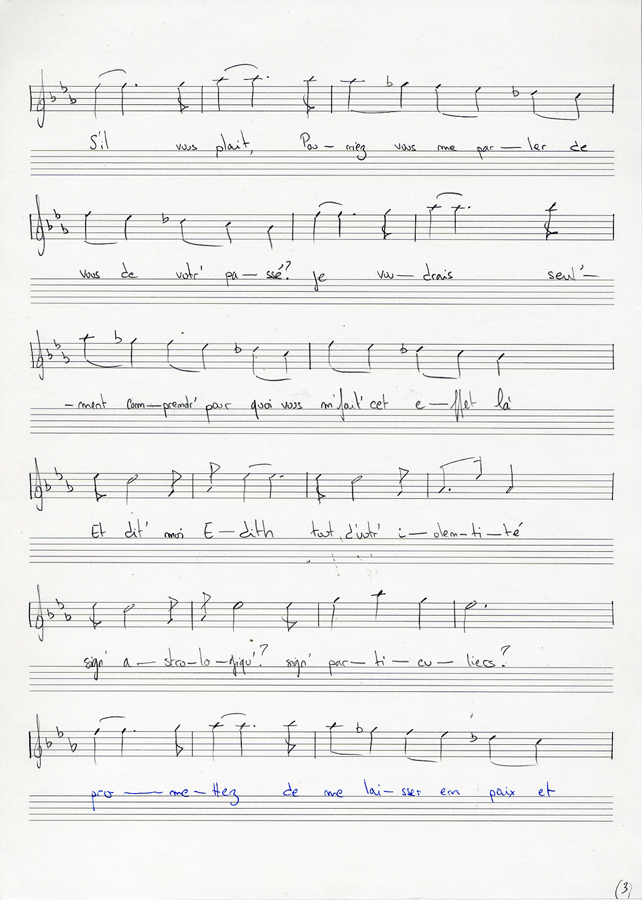 S'il vous plaît, Pou-rriez vous me par-ler de
vous de votr' pa-ssé? je vou-drais seul'-
-ment com-prendr' pour quoi vous m'fait' cet e-ffet là
Et dit' moi E-dith tout d'votr' i-den-ti-té
sign' a-stro-lo-giqu'? sign' par-ti-cu-liers?
pro-me-ttez de me lai-sser en paix et
(3)